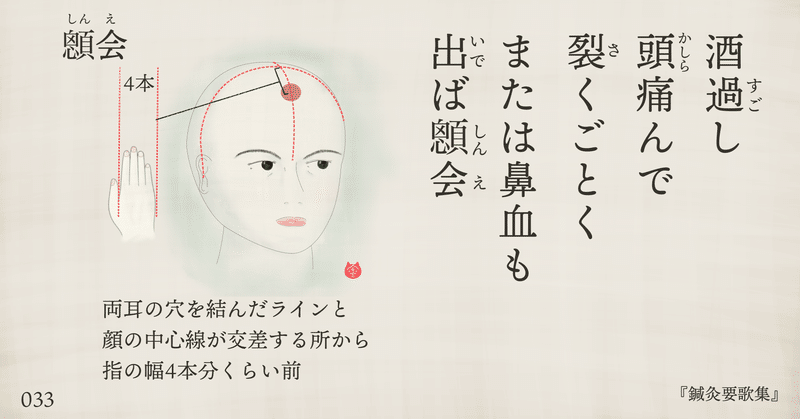 顖会
しん え
4本
酒過し
すご
頭痛んで
かしら
裂くごとく
さ
または鼻血も
出ば顖会
いで
しん え
両耳の穴を結んだラインと
顔の中心線が交差する所から
指の幅4本分くらい前
033
『鍼灸要歌集』